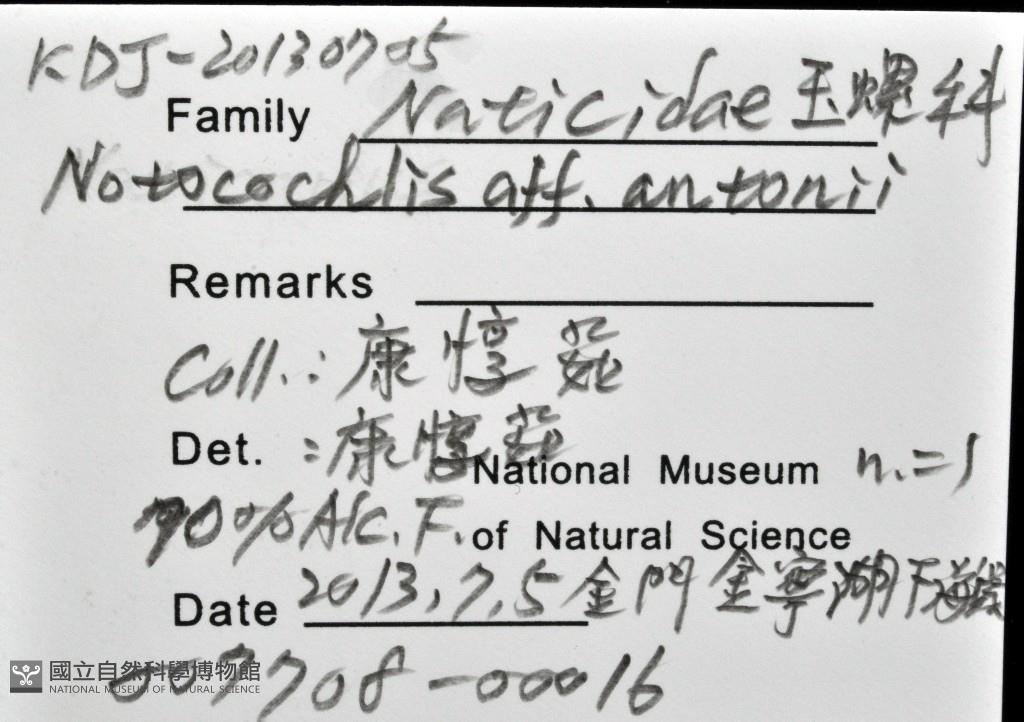 KDJ-20130705
Family Naticidae 玉螺科
Notocochlis aff. antonii
Remarks
Coll.: 康惇
Det. : 康惇
National Museum n.=1
70% Alc. F. of Natural Science
Date 2013.7.5 金門金寧湖下海
007708-00016
國立自然科學博物館
NATIONAL MUSEUM OF NATURAL SCIENCE